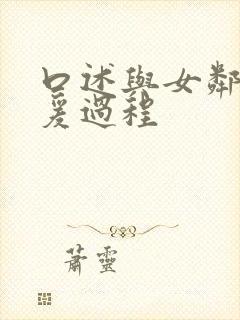 口述與女鄰
爰過程
蕭靈